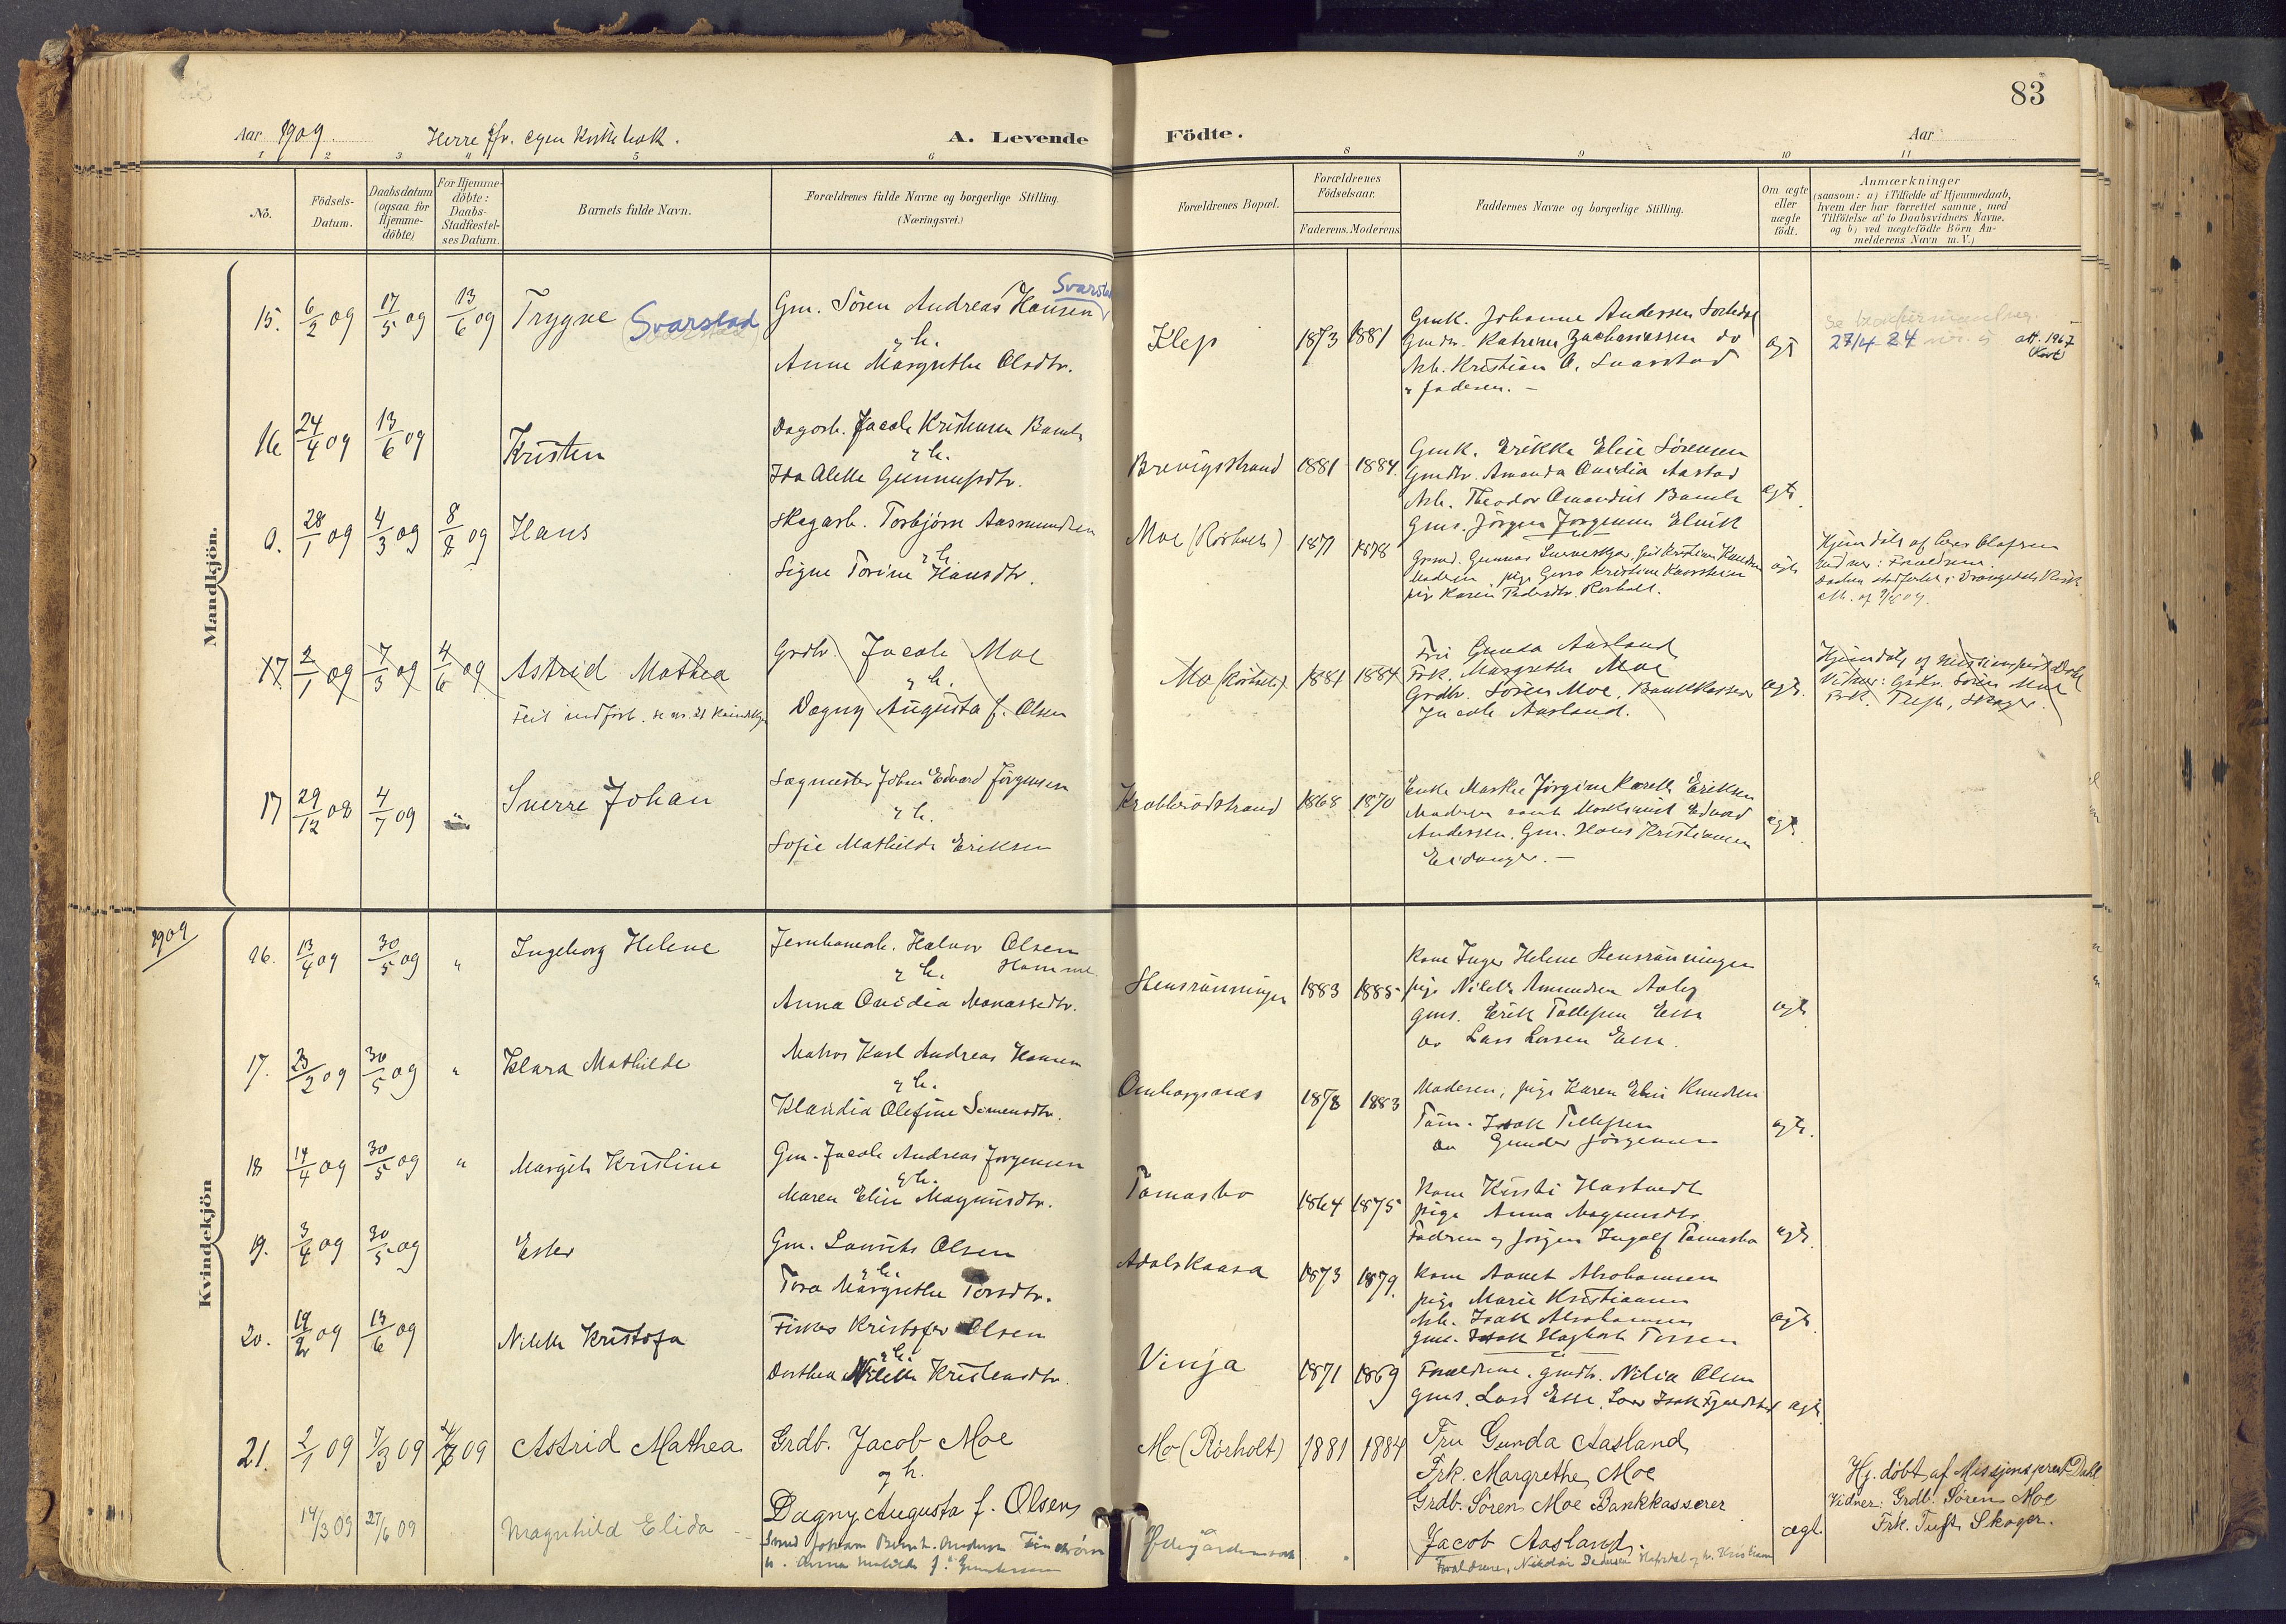 83
Aar 1909
Herre fr. egen Kirkebok.
A. Levende
Födte.
Aar
1 2 3 4 5 6 8 9 10 11
No.
Födsels-
Datum.
Daabsdatum
(ogsaa for
Hjemme-
döbte)
For Hjemme-
döbte:
Daabs-
Stadfæstel-
ses Datum.
Barnets fulde Navn.
Forældrenes fulde Navne og borgerlige Stilling.
(Næringsvei.)
Forældrenes Bopæl.
Forældrenes
Födselsaar.
Faderens. Moderens
Faddernes Navne og borgerlige Stilling.
Om ægte
eller
uægte
födt.
Anmærkninger
(saasom: a) i Tilfælde af Hjemmedaab,
hvem der har forrettet samme, med
Tilföielse af to Daabsvidners Navne.
og b) ved uægtefödte Börn An-
melderens Navn m. V.)
Mandkjön.
15. 6/2 09 17/5 09 13/6 09 Trygve Svarstad
Gm. Sören Andreas Hansen Svarstad
og h.
Anne Margrethe Olsdtr.
Klep 1873 1881
Gmk. Johanne Andersen
Gmdtr. Katrine Zachariassen do
Arb. Kristian O. Svarstad
og faderen. —
ægt
27/4 24
att. 1967
16 24/4 09 13/6 09 Kristen
Dagarb. Jacob Kristensen Bamle
og h.
Ida Alette Gunnufsdtr.
Brevigstrand 1881 1884.
Gmk. Erikka Elise Sörensen
Gmdtr. Amanda Ovidia Aastad
Arb. Theodor Amandus Bamle
Gms. Jörgen Jörgensen Elvik
ægt.
0. 28/1 09 4/3 09 8/8 09 Hans
Skogarb. Torbjörn Aasmundsen
og h.
Signe Torine Hansdtr.
Moe (Rörholt) 1877 1878
Maderen, pige Kristine
pig Karen Pedersdtr. Rörholt.
ægt
Hjemdöbt af Olafsen
Vidner: Forældrene.
17. 2/1 09 7/3 09 4/6 09 Astrid Mathea
Feil indfört. se nr. 21 Kvindekjön
Grdbr. Jacob Moe
og h.
Dagny Augusta f. Olsen
Mo (Rörholt) 1881 1884
Fru Gunda Aasland
Frk. Margrethe Moe
Grdbr. Sören Moe, Bankkasserer
Jacob Aasland.
ægt.
Hjemdöbt af Missionsprest Dahl
Vidner: Grdbr. Sören Moe
Frk. Tuft, Skoger.
17 29/12 08 4/7 09 " Sverre Johan
Sagmester Johan Edvard Jörgensen
og h.
Sofie Mathilde Eriksen
Krabberödstrand 1868 1870
Enke Marthe Jörgine Eriksen
Maderen samt Maskinist Edvard
Andersen. Gm. Hans Kristiansen
Eidanger. —
ægt.
1909
Kvindekjön
16. 13/4 09 30/5 09 " Ingeborg Helene
Jernbanearb. Halvor Olsen
og h.
Anna Ovidia Manassedtr.
Stensrönningen 1883 1885
Kone Inger Helene Stensrönningen
pige Nilette Amundsen Aaby
gms. Erik Tollefsen Esse
do Lars Larsen Esse.
ægt
17. 23/2 09 30/5 09 " Klara Mathilde
Matros Karl Andreas Hansen
og h.
Klaudia Olefine Simensdtr.
Omborgsnes 1878 1883
Maderen, pige Karen Elise Knudsen
Töm. Isak Tellefsen
do Gunder Jörgensen
ægt.
18 14/4 09 30/5 09 " Margit Kristine
Gm. Jacob Andreas Jörgensen
og h.
Maren Elise Magnusdtr.
Tamasbo 1864 1875
Kone Kirsti Hastvedt
pige Anna Magnusdtr.
Faderen og Jörgen Ingolf Tamasbo
ægt.
19. 3/4 09 30/5 09 Ester
Gm. Laurits Olsen
og h.
Tora Margrethe Torsdtr.
Adalskaasa 1873 1879.
Kone Aanet Abrahamsen
pige Marie Kristiansen
Arb. Isak Abrahamsen
gms. Hagbart Torsen
ægt.
20. 19/2 09 13/6 09 Nilette Kristofa
Fisker Kristofer Olsen
og h.
Dorthea Nilette Kristensdtr.
Vinja 1871 1869
Forældrene. gmdtr. Nilia Olsen
gms. Lars Esse.
ægt.
21. 2/1 09 7/3 09 4/6 09 Astrid Mathea
Grdb. Jacob Moe
og h.
Dagny Augusta f. Olsen
Mo (Rörholt) 1881 1884
Fru Gunda Aasland
Frk. Margrethe Moe
Grdb. Sören Moe Bankkasserer
Jacob Aasland.
ægt.
Hj. döbt af Missjonsprest Dahl
Vidner: Grdb. Sören Moe
Frk. Tuft, Skoger.
14/3 09 27/6 09 Magnhild Elida
Smed Johan Bernt. Andersen
h. Anna Matilde f. Gundersen
Ödegården
Forældrene, Nikolai